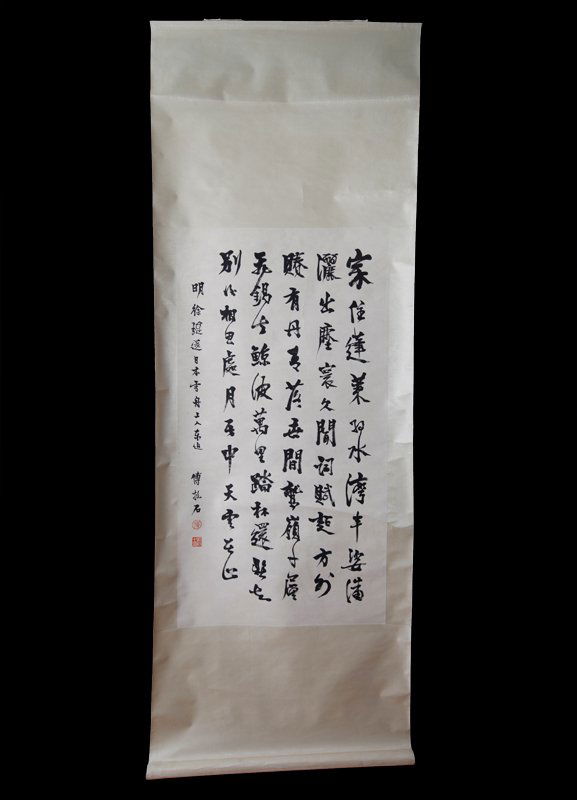 家住蓬萊弱水灣丰姿瀟
灑出塵寰久聞詞賦超方外
賸有丹青落世間鷲嶺千層
飛錫去鯨波萬里踏杯還懸知
別後相思處月在中天雲在山
明徐璉送日本雪舟上人東 傅抱石